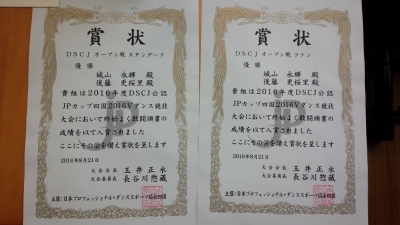 賞状
DSCJ オープン戦 スタンダード
優勝
城山 永輝 殿
後藤 更桜里 殿
貴組は2016年度DSCJ公認
JPカップ四国2016Vダンス競技
大会において終始よく敢闘頭書の
成績を以て入賞されました
ここにその栄を讃え賞状を呈します
2016年8月21日
大会会長 玉井正永
大会委員長 長谷川惣蔵
主催:日本プロフェッショナル・ダンススポーツ協会四国
賞状
DSCJ オープン戦 ラテン
優勝
城山 永輝 殿
後藤 更桜里 殿
貴組は2016年度DSCJ公認
JPカップ四国2016Vダンス競技
大会において終始よく敢闘頭書の
成績を以て入賞されました
ここにその栄を讃え賞状を呈します
2016年8月21日
大会会長 玉井正永
大会委員長 長谷川惣蔵
主催:日本プロフェッショナル・ダンススポーツ協会四国